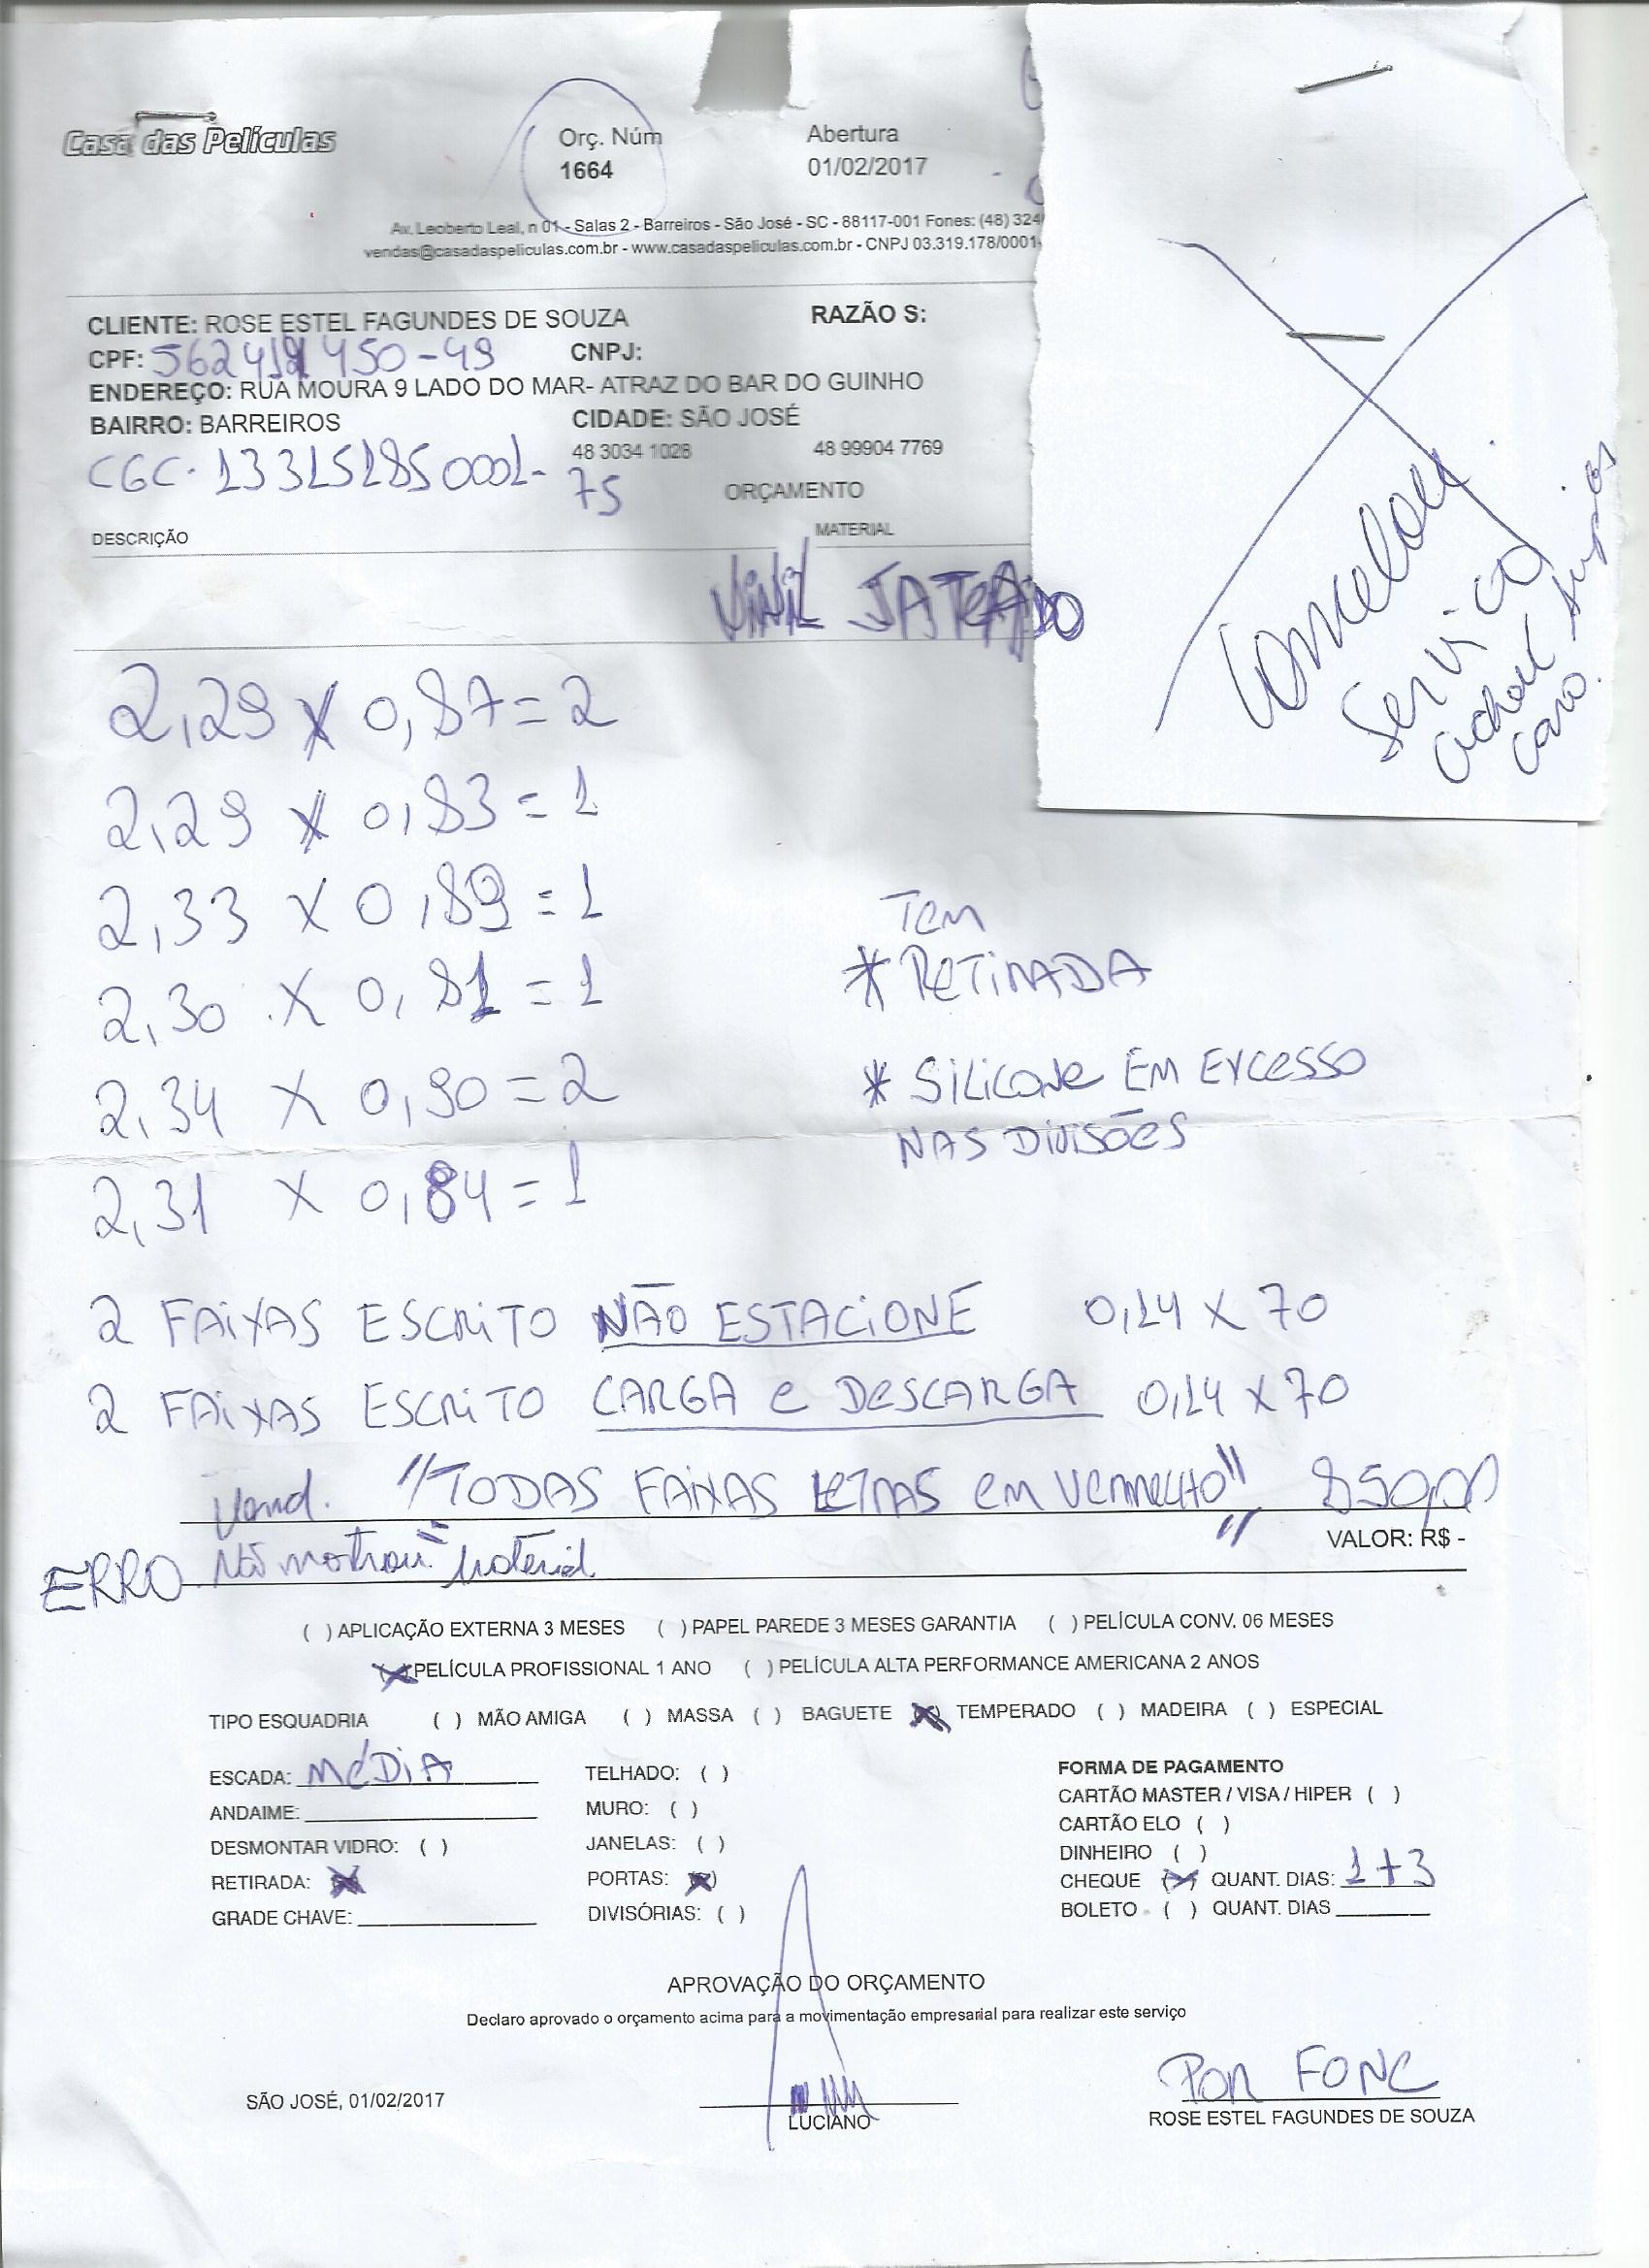 Casa das Películas
Orç. Núm
1664
Abertura
01/02/2017
Av. Leoberto Leal, n 01 - Salas 2 - Barreiros - São José - SC - 88117-001 Fones: (48) 324
vendas@casadaspeliculas.com.br - www.casadaspeliculas.com.br - CNPJ 03.319.178/0001-
CLIENTE: ROSE ESTEL FAGUNDES DE SOUZA RAZÃO S:
CPF: CNPJ:
ENDEREÇO: RUA MOURA 9 LADO DO MAR- ATRAZ DO BAR DO GUINHO
BAIRRO: BARREIROS CIDADE: SÃO JOSÉ
48 3034 1028 48 99904 7769
CGC. 13315185 0001-75
ORÇAMENTO
DESCRIÇÃO MATERIAL
VINIL JATEADO
Cancelou
Serviço
achou
caro.
2,29 X 0,87 = 2
2,29 X 0,83 = 1
2,33 X 0,89 = 1
2,30 X 0,81 = 1
2,34 X 0,90 = 2
2,31 X 0,84 = 1
Tem
* RETIRADA
* SILICONE EM EXCESSO
NAS DIVISÕES
2 FAIXAS ESCRITO NÃO ESTACIONE 0,14 X 70
2 FAIXAS ESCRITO CARGA e DESCARGA 0,14 X 70
Vend. "TODAS FAIXAS LETRAS em VERMELHO" 850,00
VALOR: R$ -
ERRO. Não motrou material
( ) APLICAÇÃO EXTERNA 3 MESES ( ) PAPEL PAREDE 3 MESES GARANTIA ( ) PELÍCULA CONV. 06 MESES
(X) PELÍCULA PROFISSIONAL 1 ANO ( ) PELÍCULA ALTA PERFORMANCE AMERICANA 2 ANOS
TIPO ESQUADRIA ( ) MÃO AMIGA ( ) MASSA ( ) BAGUETE (X) TEMPERADO ( ) MADEIRA ( ) ESPECIAL
ESCADA: MéDIA
ANDAIME:
DESMONTAR VIDRO: ( )
RETIRADA: (X)
GRADE CHAVE:
TELHADO: ( )
MURO: ( )
JANELAS: ( )
PORTAS: (X)
DIVISÓRIAS: ( )
FORMA DE PAGAMENTO
CARTÃO MASTER / VISA / HIPER ( )
CARTÃO ELO ( )
DINHEIRO ( )
CHEQUE (X) QUANT. DIAS: 1+3
BOLETO ( ) QUANT. DIAS
APROVAÇÃO DO ORÇAMENTO
Declaro aprovado o orçamento acima para a movimentação empresarial para realizar este serviço
SÃO JOSÉ, 01/02/2017
LUCIANO
POR FONE
ROSE ESTEL FAGUNDES DE SOUZA